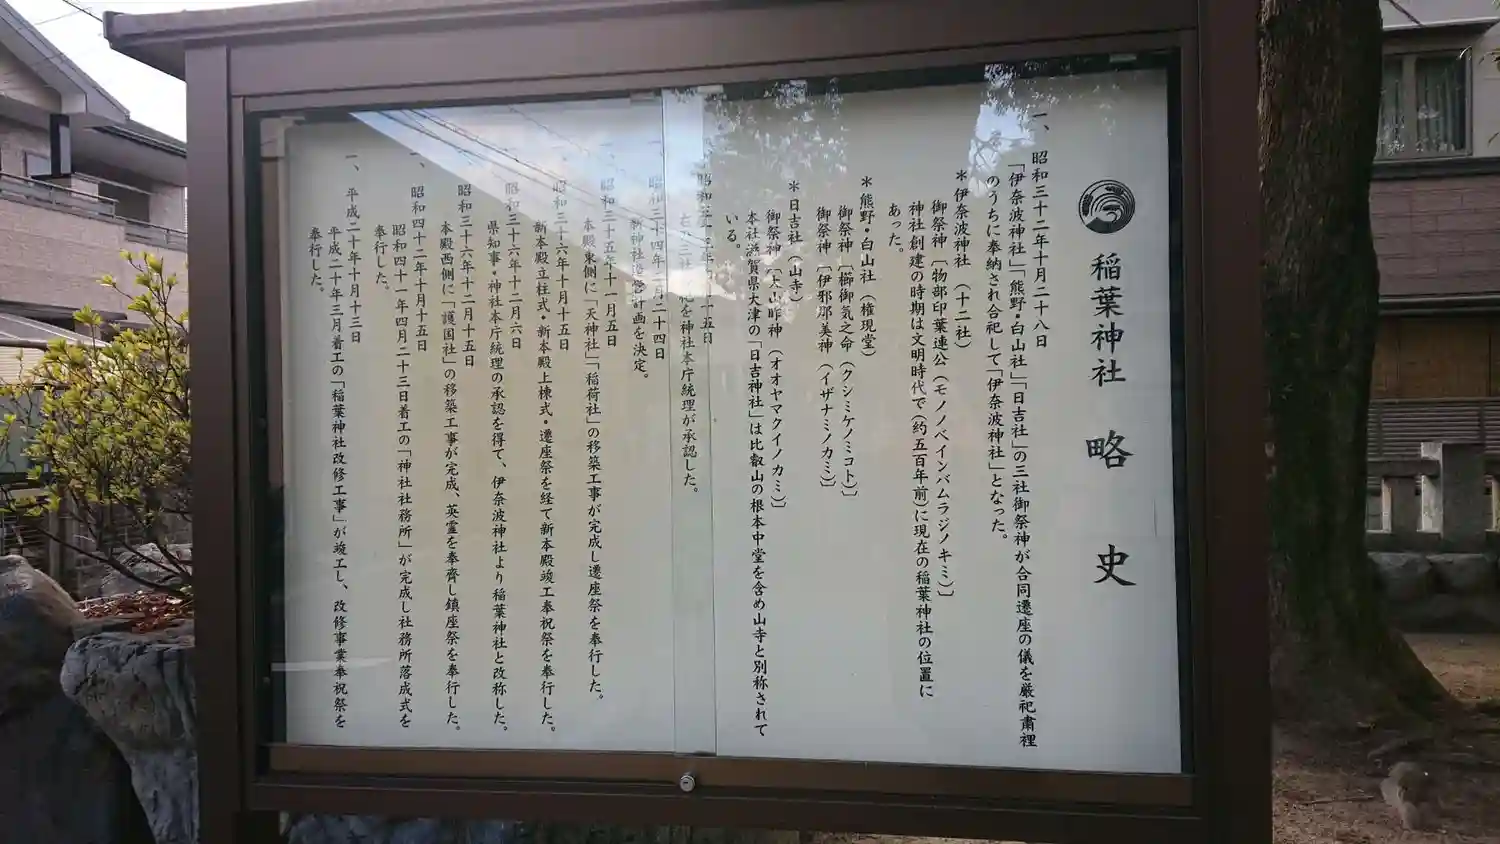 稲葉神社 略史
一、昭和三十二年十月二十八日
「伊奈波神社」「熊野・白山社」「日吉社」の三社御祭神が合同遷座の儀を厳祀粛裡
のうちに奉納され合祀して「伊奈波神社」となった。
＊伊奈波神社（十二社）
御祭神〔物部印葉連公（モノノベインバムラジノキミ）〕
神社創建の時期は文明時代で（約五百年前）に現在の稲葉神社の位置に
あった。
＊熊野・白山社（権現堂）
御祭神〔櫛御気之命（クシミケノミコト）〕
御祭神〔伊邪那美神（イザナミノカミ）〕
＊日吉社（山寺）
御祭神〔大山咋神（オオヤマクイノカミ）〕
本社滋賀県大津の「日吉神社」は比叡山の根本中堂を含め山寺と別称されて
いる。
十五日
祀を神社本庁統理が承認した。
昭和三十四年 月二十四日
新神社造営計画を決定。
昭和三十五年十一月五日
本殿東側に「天神社」「稲荷社」の移築工事が完成し遷座祭を奉行した。
昭和三十六年十月十五日
新本殿立柱式・新本殿上棟式・遷座祭を経て新本殿竣工奉祝祭を奉行した。
昭和三十六年十二月六日
県知事・神社本庁統理の承認を得て、伊奈波神社より稲葉神社と改称した。
昭和三十六年十二月十五日
本殿西側に「護国社」の移築工事が完成、英霊を奉齊し鎮座祭を奉行した。
一、昭和四十二年十月十五日
昭和四十一年四月二十三日着工の「神社社務所」が完成し社務所落成式を
奉行した。
一、平成二十年十月十三日
平成二十年三月着工の「稲葉神社改修工事」が竣工し、改修事業奉祝祭を
奉行した。